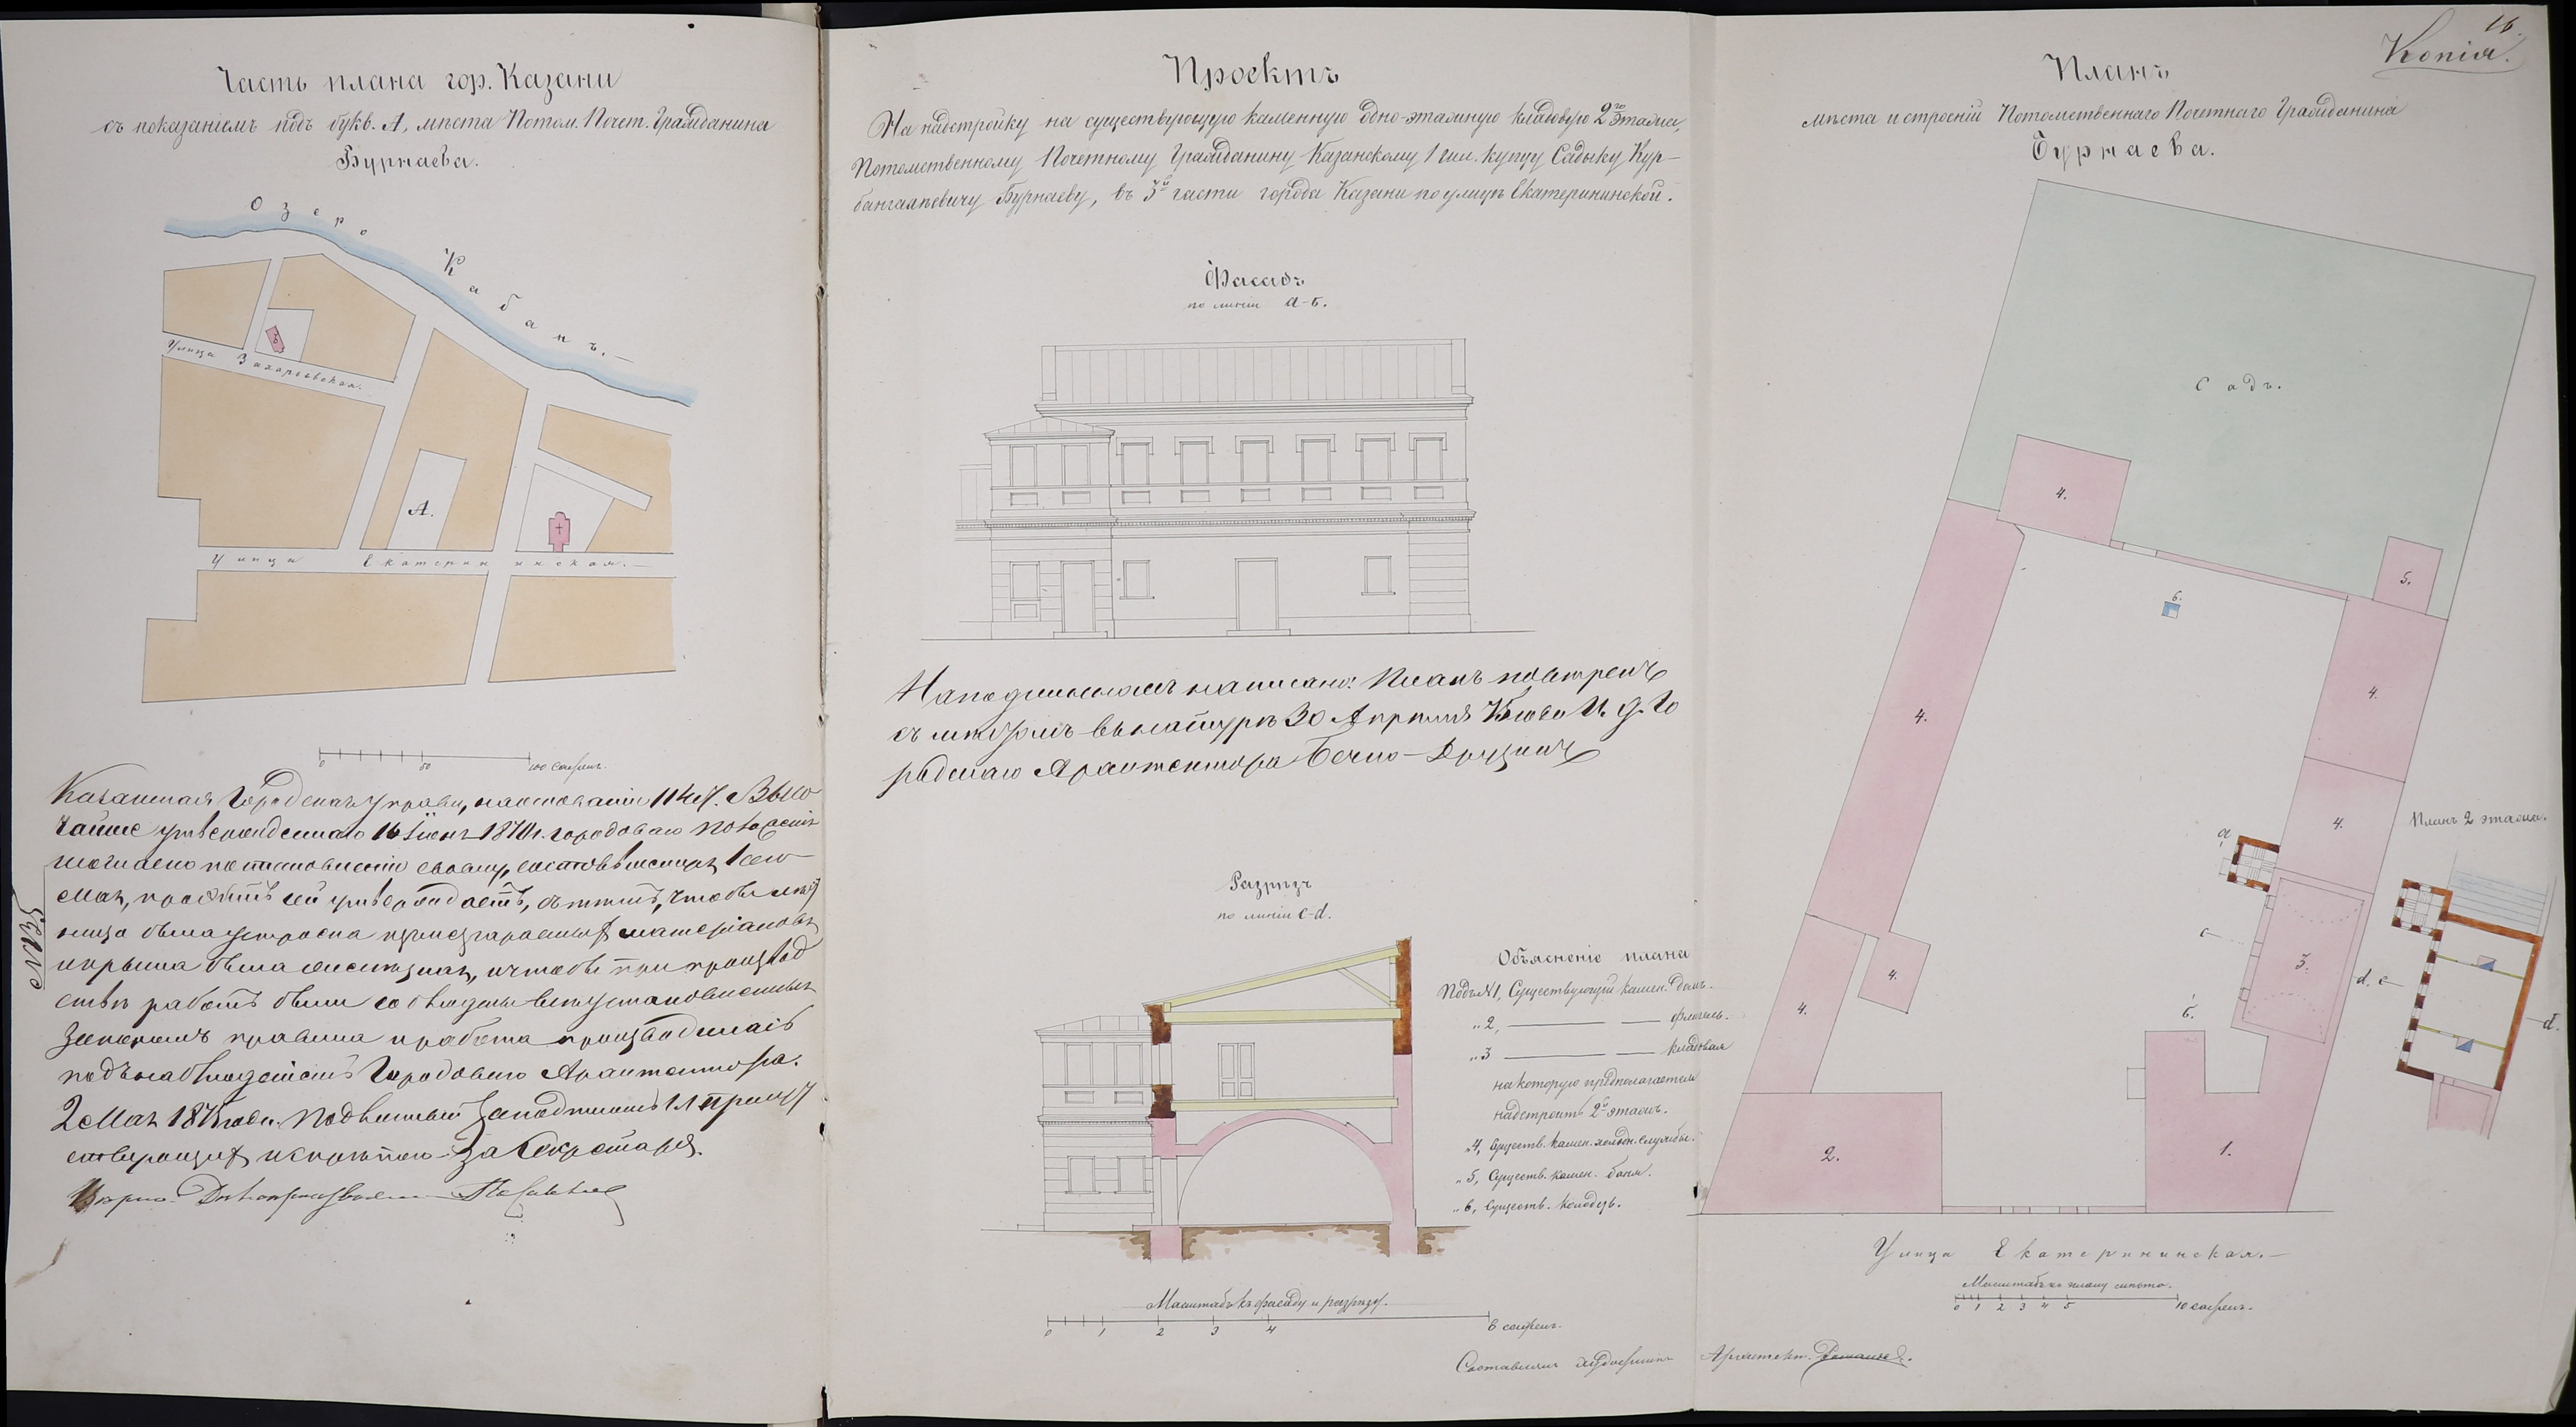 Часть плана гор. Казани
съ показаніемъ подъ букв. А, мѣста Потом. Почет. Гражданина
Бурнаева.
Озеро Кабанъ.
Улица Захарьевская.
А.
Улица Екатерининская.
0 50 100 сажень.
Казанская Городская Управа, на основаніи 114 ст. Высо
чайше утвержденнаго 16 Іюня 1870 г. городоваго положенія
согласно постановленію своему, состоявшемуся 1 сего
Мая, проэктъ сей утверждаетъ, съ тѣмъ, чтобы лѣст
ница была устроена изъ несгараемыхъ матеріаловъ
и крыша была желѣзная, и чтобы при производ
ствѣ работъ были соблюдены всѣ установленныя
закономъ правила и работа производилась
подъ наблюденіемъ Городоваго Архитектора.
2 Мая 1875 года. Подлинный за подписомъ
за Секретаря.
Вѣрно:
№ 35
Проектъ
На надстройку на существующую каменную одно-этажную кладовую 2го этажа,
Потомственному Почетному Гражданину Казанскому 1 гил. купцу Садыку Кур-
бангалѣевичу Бурнаеву, въ 3й части города Казани по улицѣ Екатерининской.
Фасадъ
по линіи а-б.
На подлинномъ написано: Планъ повѣренъ
съ мѣстомъ въ натурѣ 30 Апрѣля 75 года И. д. Го
родскаго Архитектора Бечко-Друзинъ
Разрѣзъ
по линіи c-d.
Объясненіе плана
Подъ №1, Существующій камен. домъ.
„ 2, — — флигель.
„ 3 — — кладовая
на которую предполагается
надстроить 2й этажъ.
„ 4, Существ. камен. холодн. службы.
„ 5, Существ. камен. баня.
„ 6, Существ. колодезь.
Масштабъ къ фасаду и разрѣзу.
0 1 2 3 4 8 сажень.
Составилъ художникъ Архитект. Романовъ.
16.
Копія.
Планъ
мѣста и строеній Потомственнаго Почетнаго Гражданина
Бурнаева.
Садъ.
4.
5.
6.
4.
4.
4.
Планъ 2 этажа.
а
c
3.
d.
c
d.
4.
4.
б.
2.
1.
Улица Екатерининская.
Масштабъ къ плану мѣста.
0 1 2 3 4 5 10 сажень.